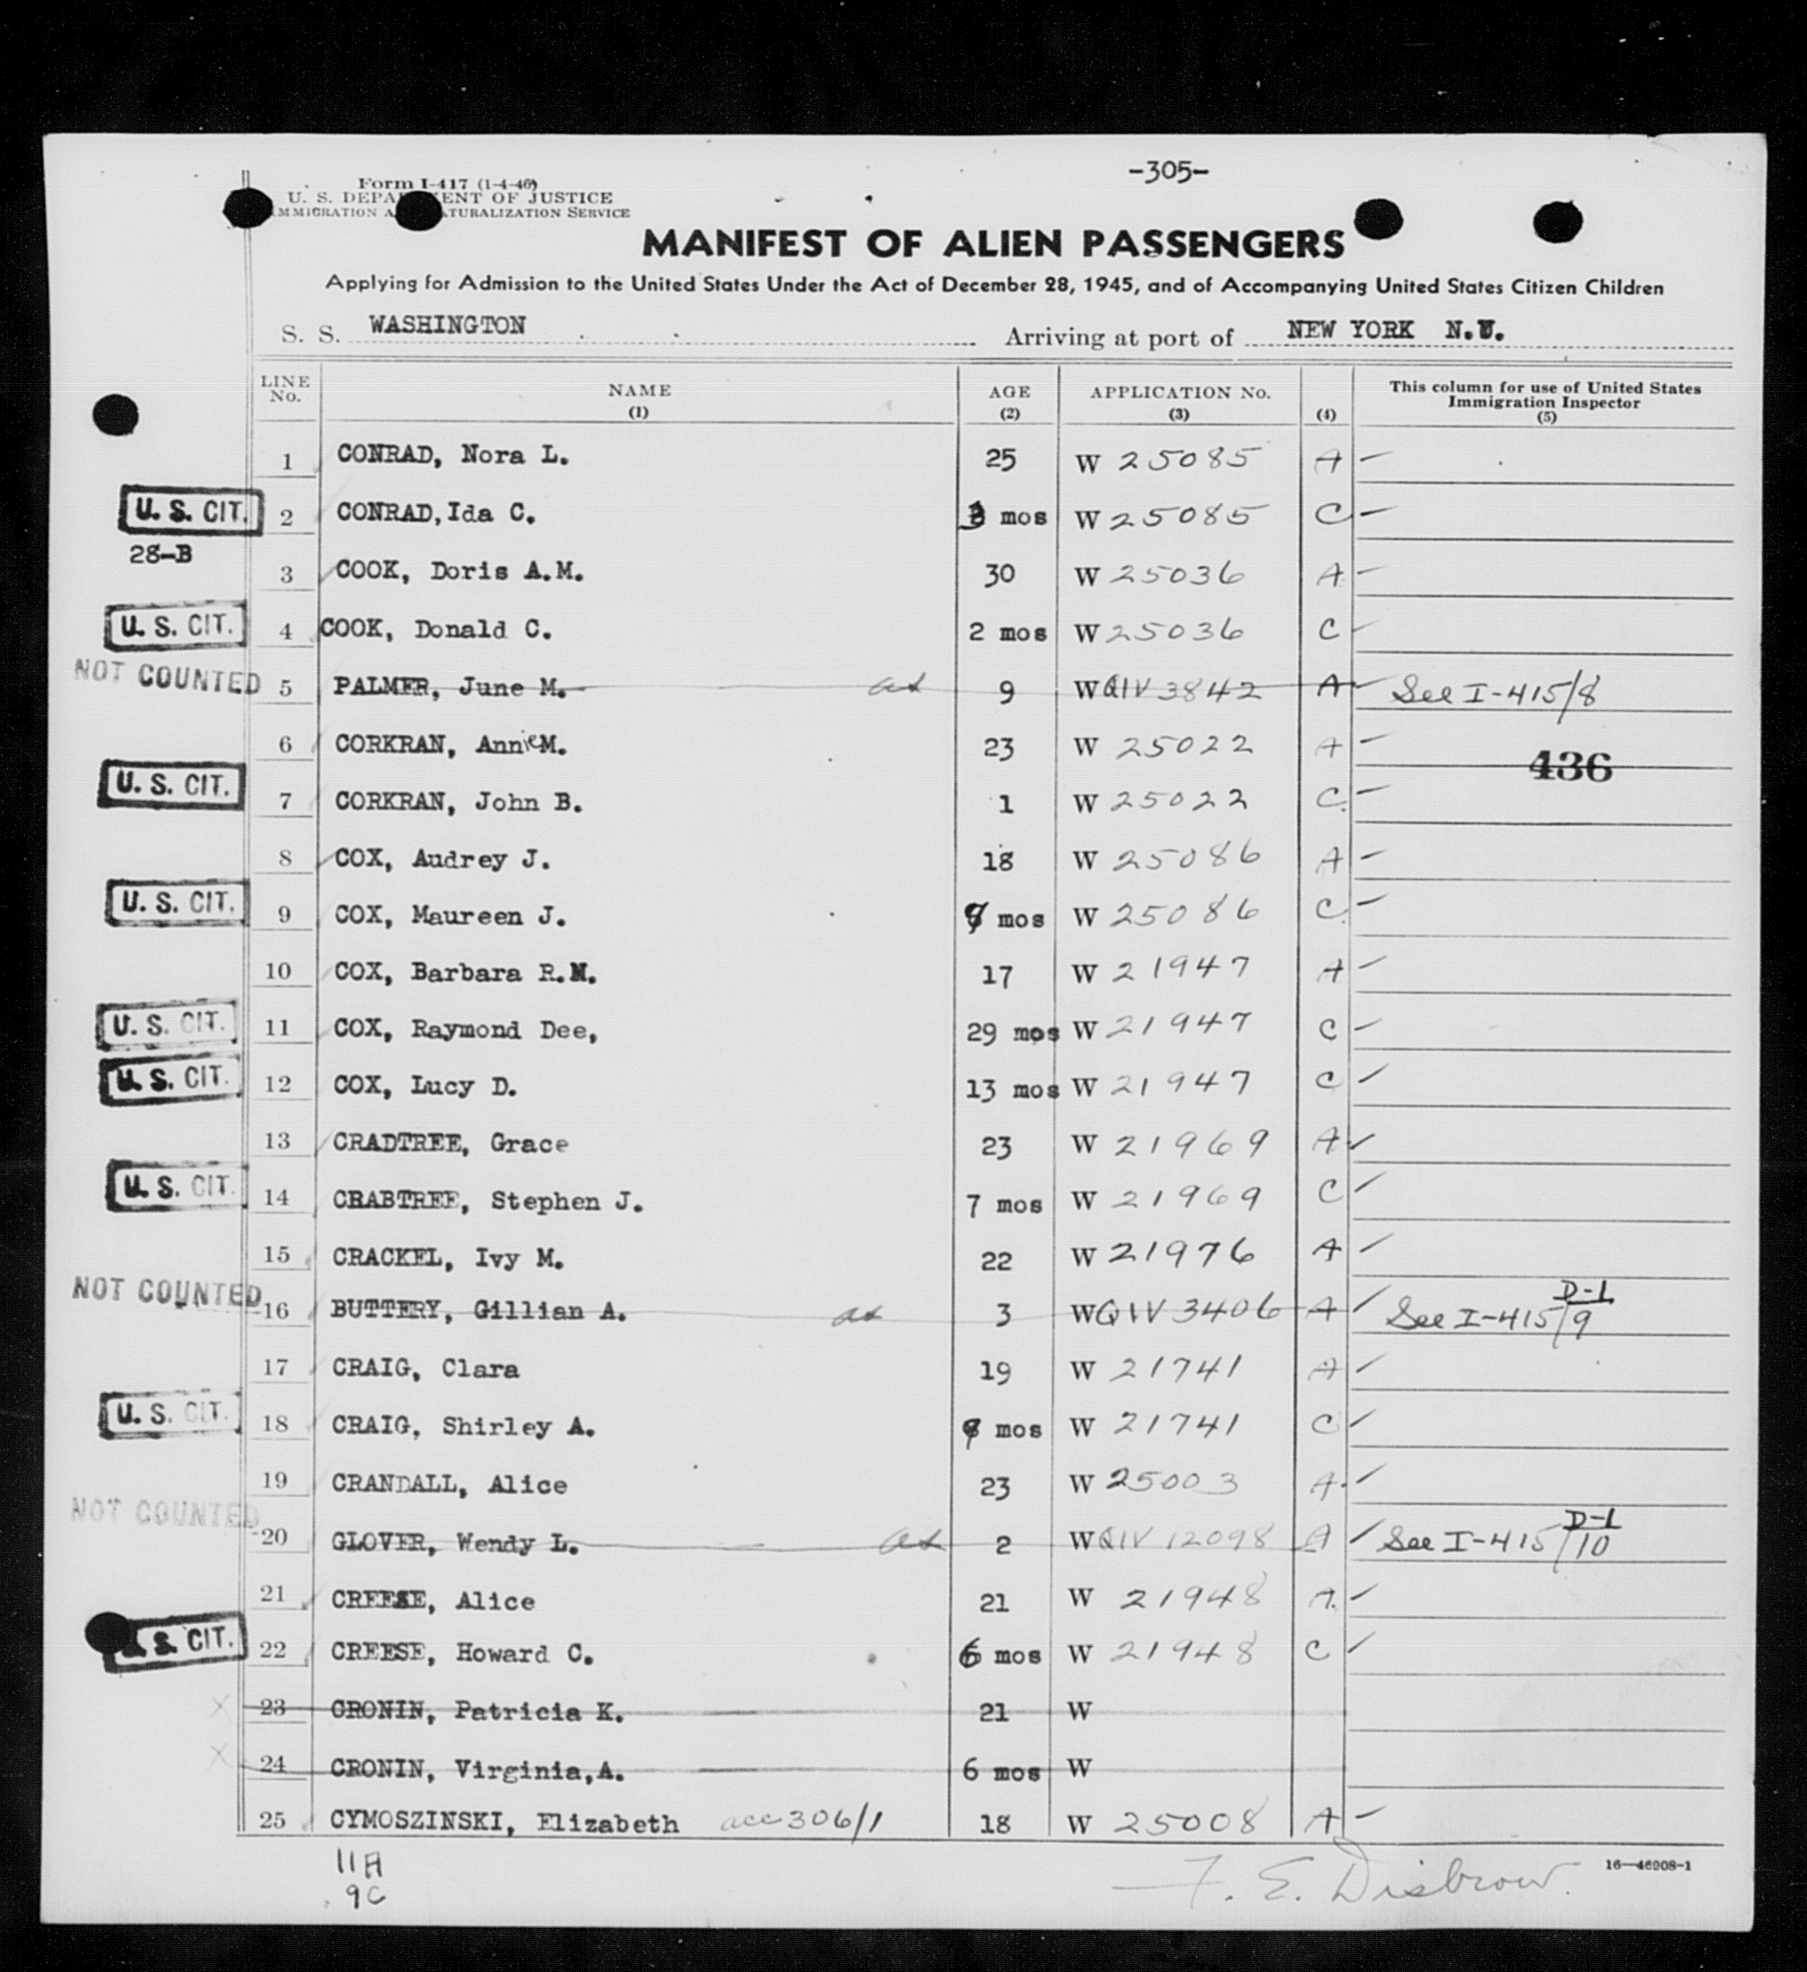 -305-
Form I-417 (1-4-46)
U. S. DEPARTMENT OF JUSTICE
IMMIGRATION AND NATURALIZATION SERVICE
MANIFEST OF ALIEN PASSENGERS
Applying for Admission to the United States Under the Act of December 28, 1945, and of Accompanying United States Citizen Children
S. S. WASHINGTON Arriving at port of NEW YORK N.Y.
LINE No. NAME (1) AGE (2) APPLICATION No. (3) (4) This column for use of United States Immigration Inspector (5)
1 CONRAD, Nora L. 25 W 25085 A
U. S. CIT. 2 CONRAD, Ida C. 3 mos W 25085 C
28-B
3 COOK, Doris A.M. 30 W 25036 A
U. S. CIT. 4 COOK, Donald C. 2 mos W 25036 C
NOT COUNTED 5 PALMER, June M. 9 W QIV 3842 A See I-415/8
6 CORKRAN, AnnieM. 23 W 25022 A
436
U. S. CIT. 7 CORKRAN, John B. 1 W 25022 C.
8 COX, Audrey J. 18 W 25086 A
U. S. CIT. 9 COX, Maureen J. mos W 25086 C.
10 COX, Barbara R.M. 17 W 21947 A
U. S. CIT. 11 COX, Raymond Dee, 29 mos W 21947 C
U. S. CIT. 12 COX, Lucy D. 13 mos W 21947 C
13 CRADTREE, Grace 23 W 21969 A
U. S. CIT. 14 CRABTREE, Stephen J. 7 mos W 21969 C
15 CRACKEL, Ivy M. 22 W 21976 A
NOT COUNTED 16 BUTTERY, Gillian A. 3 W QIV 3406 A See I-415 D-1/9
17 CRAIG, Clara 19 W 21741 A
U. S. CIT. 18 CRAIG, Shirley A. mos W 21741 C
19 CRANDALL, Alice 23 W 25003 A.
NOT COUNTED 20 GLOVER, Wendy L. 2 W QIV 12098 A See I-415 D-1/10
21 CREESE, Alice 21 W 21948 A.
U. S. CIT. 22 CREESE, Howard C. 6 mos W 21948 C
23 CRONIN, Patricia K. 21 W
24 CRONIN, Virginia,A. 6 mos W
25 CYMOSZINSKI, Elizabeth acc 306/1 18 W 25008 A
11A
9C
F. E. Disbrow.
16—46908-1